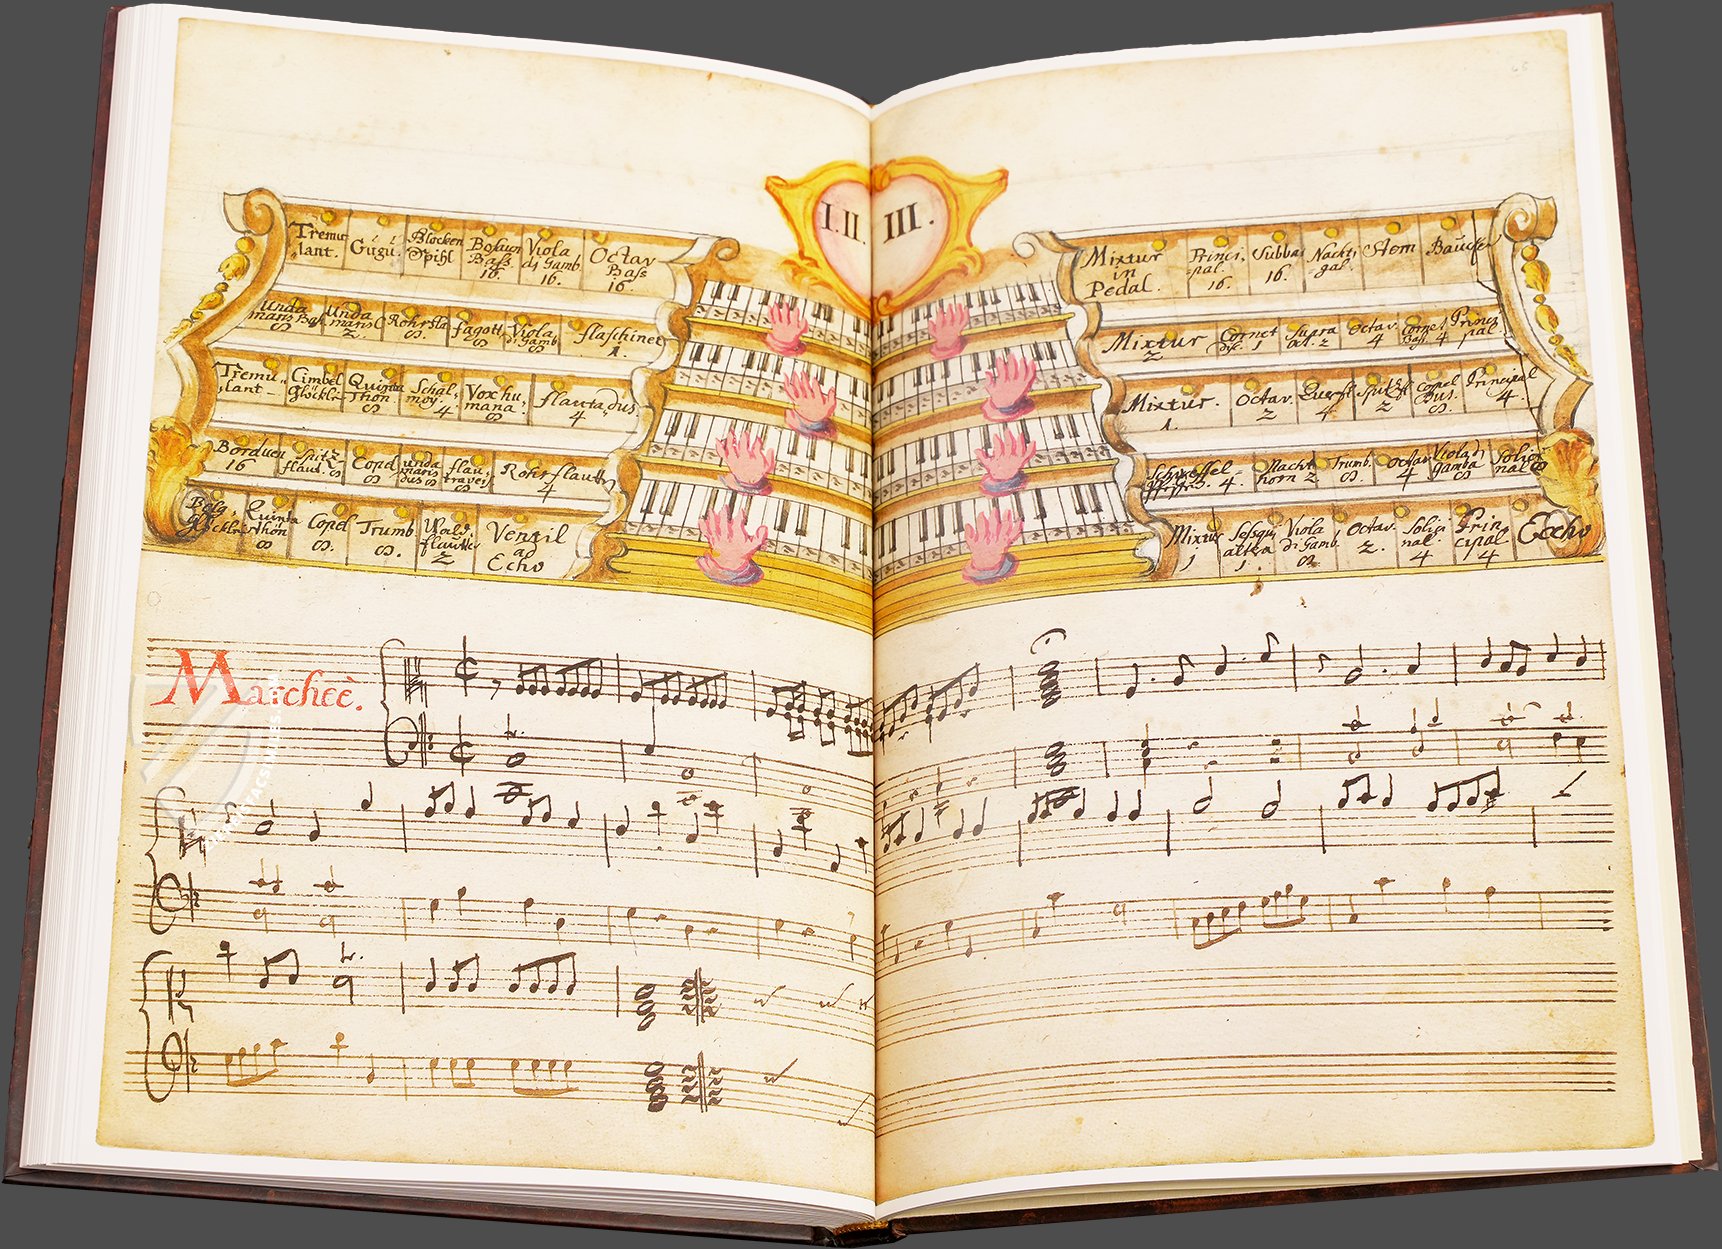 I. II. III.
Tremulant. Gugu. Blocken Spihl Bosaun Bass. 16. Viola di Gamb 16. Octav Bass 16.
Unda maris Bass 8 Unda maris 2. Rohrfla 8. fagott 8 Viola di Gamb 8 flaschinet 1.
Tremulant Cimbel glöckl Quinta Thon 8 Schalmoy. 4 Vox humana. 8 flauta dus. 4
Borduen 16 Spitz flaut. 8 Copel 8 unda maris 8 flau travers 8 Rohr flauth 4
Quinta thon 8 Copel 8. Trumb 8. Wald flauth 2 Ventil ad Echo
Mixtur in Pedal. Principal. 16. Subbas 16. Nachtigal. Stern Baucken
Mixtur 2 Cornet disc. 1 Suara 2 Octav. 4 Cornet Bass. 4 Principal.
Mixtur. 1. Octav 2 Querfl 4 Spitzfl 2 Copel Bus. 8. Principal 4.
4. Nacht horn 2 Trumb. 8. Octav 4 Viola di gamba 8 Solicinal 8
Mixtur 1 Sesquialtera 1. Viola di Gamb. 8 Octav. 2. Solicinal 4 Principal 4 Echo
Marcheè.